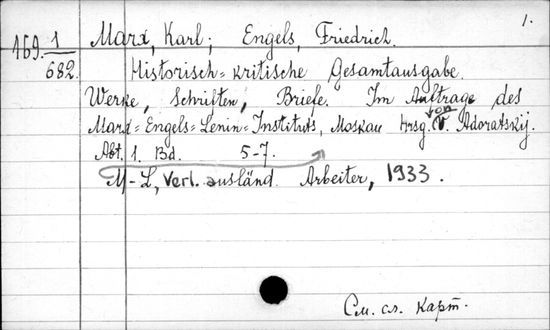 1.
169. 1/682. Marx, Karl; Engels, Friedrich.
Historisch=kritische Gesamtausgabe.
Werke, Schriften, Briefe. Im Auftrage des
Marx=Engels=Lenin=Instituts, Moskau Hrsg. von V. Adoratskij.
Abt. 1. Bd. 5-7.
M-L, Verl. ausländ. Arbeiter, 1933.
См. сл. карт.